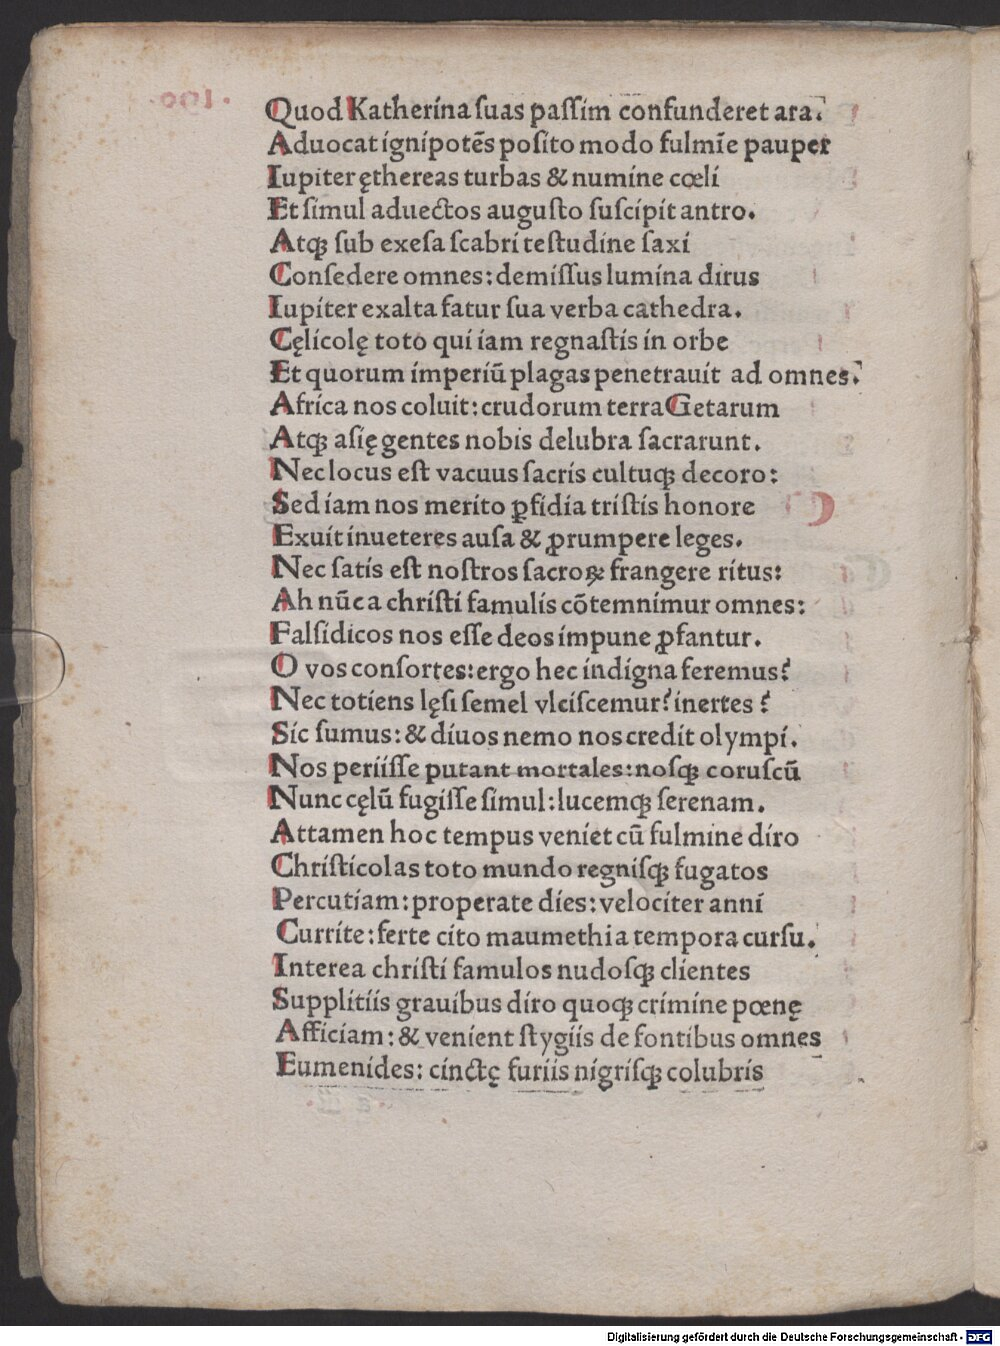 Quod Katherina suas passim confunderet ara.
Aduocat ignipotēs posito modo fulmīe pauper
Iupiter ęthereas turbas & numine cœli
Et simul aduectos augusto suscipit antro.
Atqꝫ sub exesa scabri testudine saxi
Consedere omnes: demissus lumina dirus
Iupiter exalta fatur sua verba cathedra.
Cęlicolę toto qui iam regnastis in orbe
Et quorum imperiū plagas penetrauit ad omnes.
Africa nos coluit: crudorum terra Getarum
Atqꝫ asię gentes nobis delubra sacrarunt.
Nec locus est vacuus sacris cultuqꝫ decoro:
Sed iam nos merito ꝑfidia tristis honore
Exuit inueteres ausa & ꝓrumpere leges.
Nec satis est nostros sacroꝝ frangere ritus:
Ah nūc a christi famulis cōtemnimur omnes:
Falsidicos nos esse deos impune ꝓfantur.
O vos consortes: ergo hec indigna feremus?
Nec totiens lęsi semel vlciscemur? inertes?
Sic sumus: & diuos nemo nos credit olympi.
Nos periisse putant mortales: nosqꝫ coruscū
Nunc cęlū fugisse simul: lucemqꝫ serenam.
Attamen hoc tempus veniet cū fulmine diro
Christicolas toto mundo regnisqꝫ fugatos
Percutiam: properate dies: velociter anni
Currite: ferte cito maumethia tempora cursu.
Interea christi famulos nudosqꝫ clientes
Supplitiis grauibus diro quoqꝫ crimine pœnę
Afficiam: & venient stygiis de fontibus omnes
Eumenides: cinctę furiis nigrisqꝫ colubris
Digitalisierung gefördert durch die Deutsche Forschungsgemeinschaft - DFG